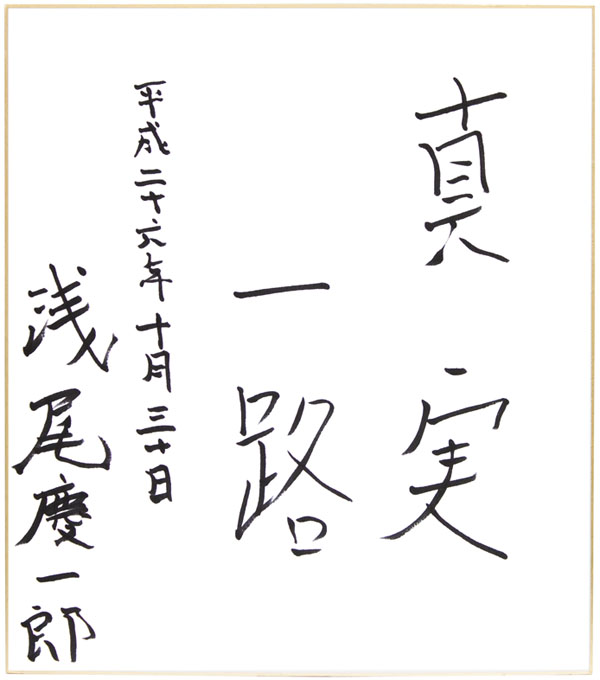 真実
一路
平成二十六年十月三十日
浅尾慶一郎